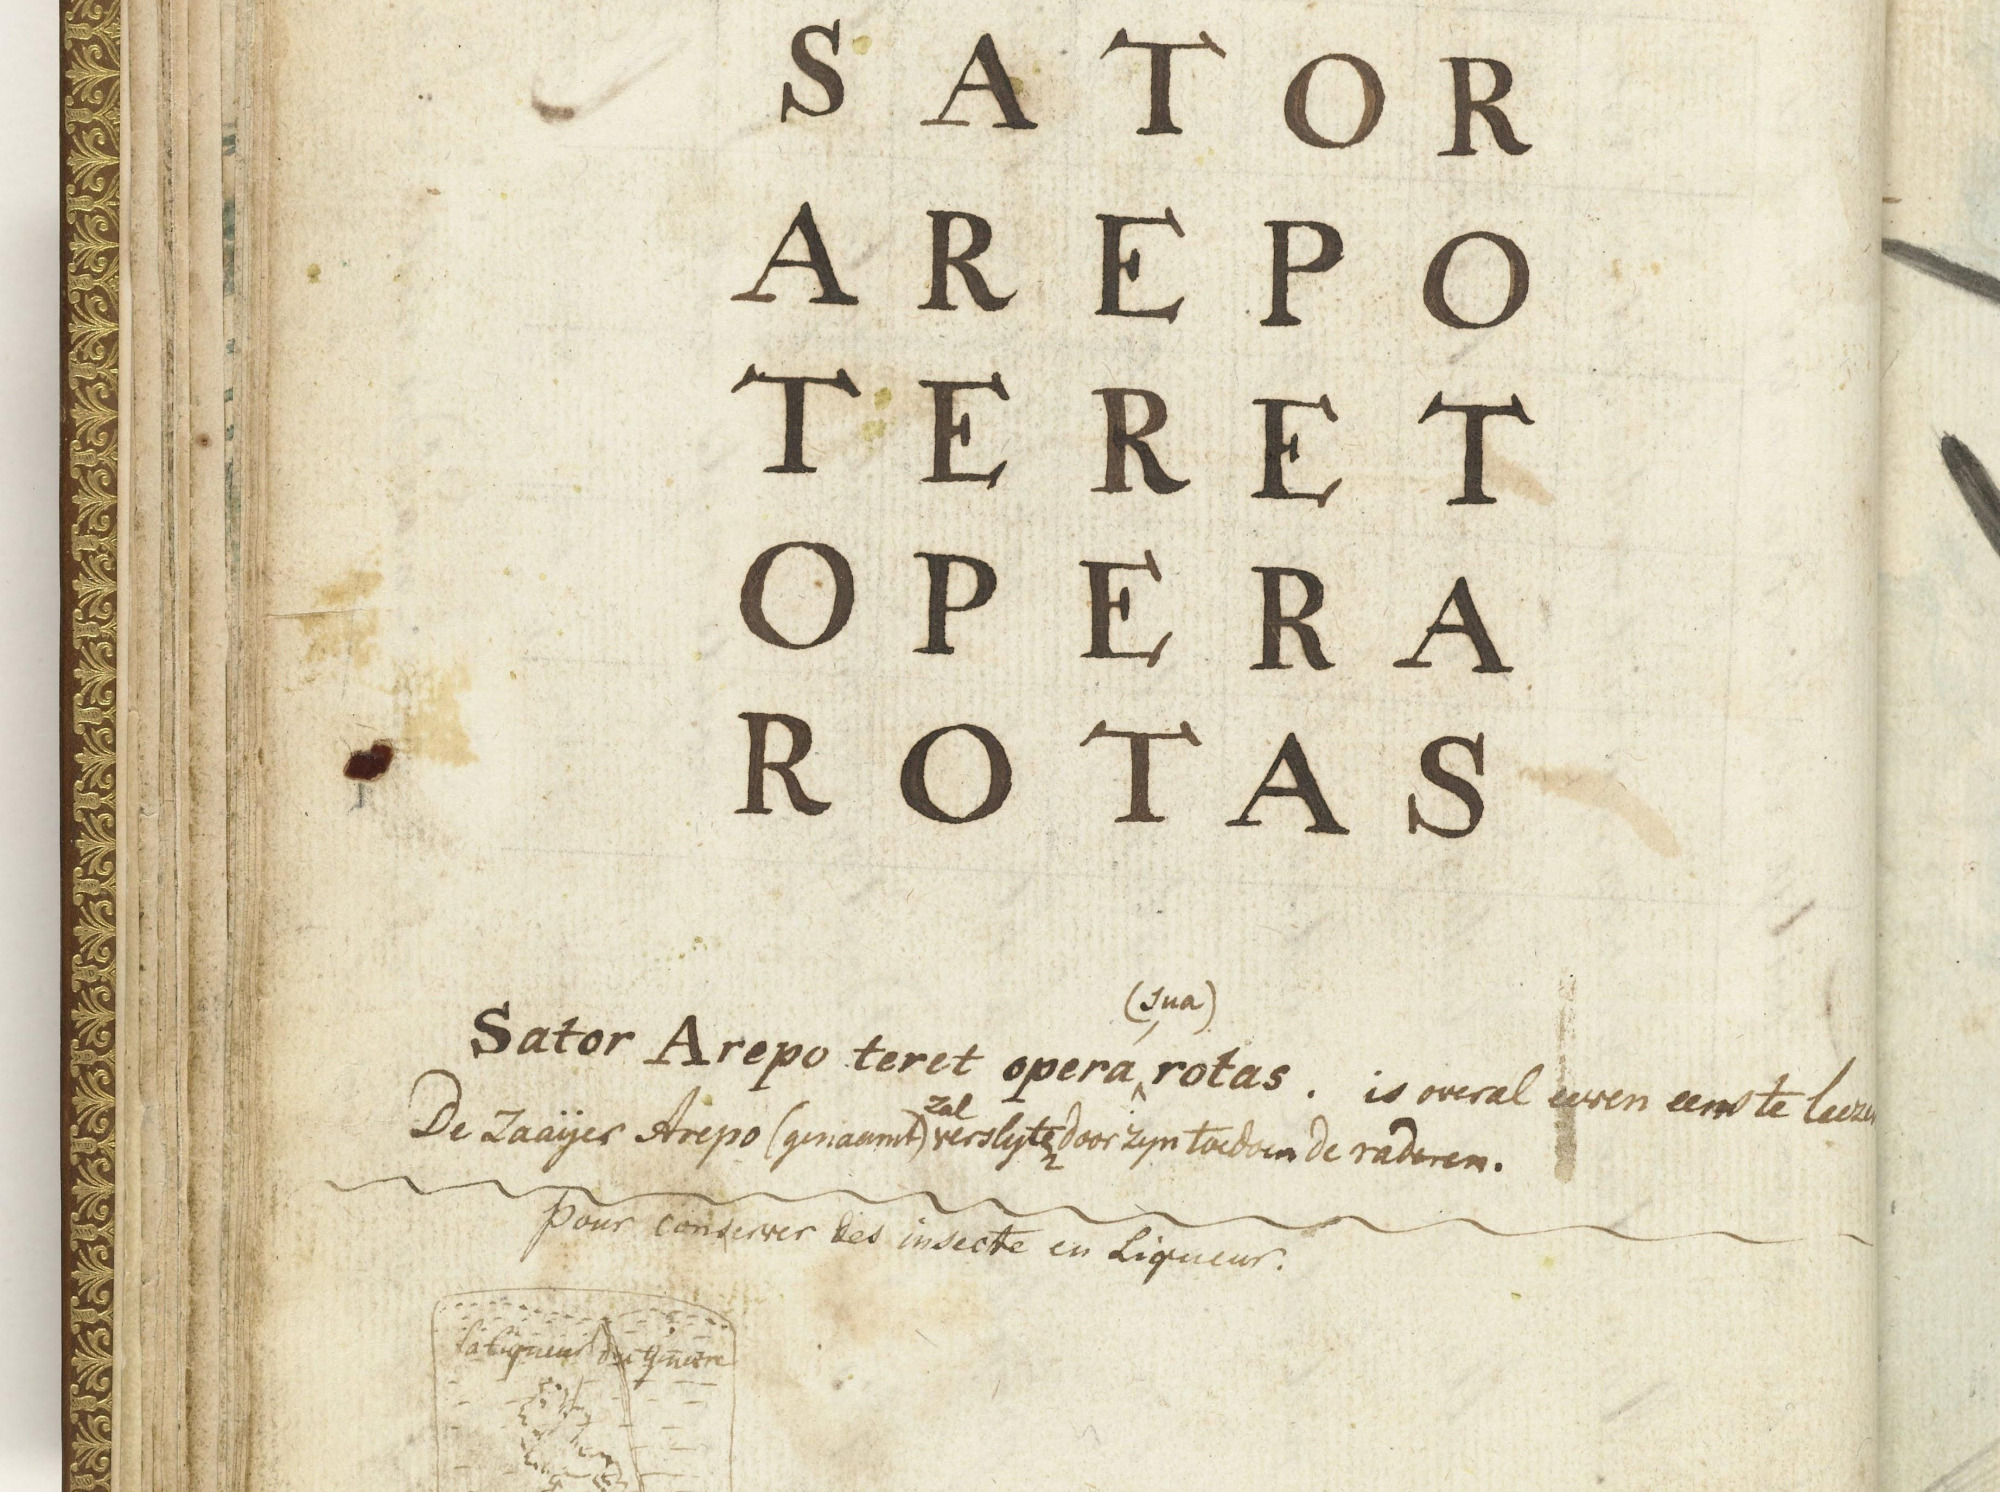 S A T O R
A R E P O
T E R E T
O P E R A
R O T A S
(sua)
Sator Arepo teret opera, rotas. is overal even eens te leeze
zal
De Zaaijer Arepo (genaamt) verslyten door zyn toedoen de raderen.
pour conserver des insecte en Liqueur.
la liqueur du